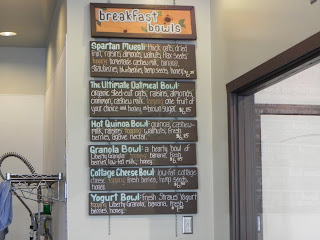 breakfast
bowls
Spartan Muesli: thick oats, dried
fruit, raisins, almonds, walnuts, flax seeds
topping: homemade cashew milk, banana,
strawberries, blueberries, hemp seeds, honey
The Ultimate Oatmeal Bowl:
organic steel-cut oats, raisins, almonds,
cinnamon, cashew milk, topping: one fruit of
your choice and honey or brown sugar $6.95
Hot Quinoa Bowl: quinoa, cashew-
milk, raisins topping: walnuts, fresh
berries, agave nectar.
Granola Bowl: a hearty bowl of
Liberty Granola, topping: banana, fresh
berries, low-fat milk, honey
Cottage Cheese Bowl: low-fat cottage
cheese topping: fresh berries, hemp seeds,
honey
Yogurt Bowl: fresh Straus Yogurt
topping: Liberty Granola, banana, fresh
berries, honey.